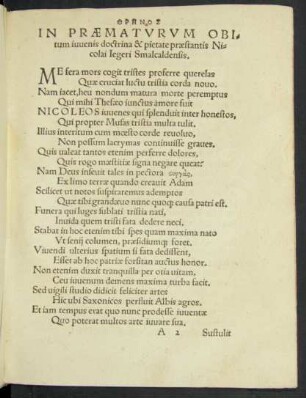 ΘΡΗΝΟΣ
IN PRÆMATVRVM OBI-
tum iuuenis doctrina & pietate præstantis Ni-
colai Iegeri Smalcaldensis.
ME fera mors cogit tristes proferre querelas
Quæ cruciat luctu tristia corda nouo.
Nam iacet, heu nondum matura morte peremptus
Qui mihi Thesæo iunctus amore fuit
NICOLEOS iuuenes qui splenduit inter honestos,
Qui propter Musas tristia multa tulit.
Illius interitum cum mœsto corde reuoluo,
Non possum lacrymas continuisse graues.
Quis ualeat tantos etenim perferre dolores,
Quis rogo mæsticiæ signa negare queat?
Nam Deus inseuit tales in pectora
Ex limo terræ quando creauit Adam
Scilicet ut notos suspiraremus ademptos
Quæ tibi grandæuo nunc quoq; causa patri est.
Funera qui luges sublati tristia nati,
Inuida quem tristi fata dedere neci,
Stabat in hoc etenim tibi spes quam maxima nato
Vt senij columen, præsidiumq; foret.
Viuendi ulterius spatium si fata dedissent,
Esset ab hoc patriæ forsitan auctus honor.
Non etenim duxit tranquilla per otia uitam,
Ceu iuuenum demens maxima turba facit.
Sed uigili studio didicit feliciter artes
Hic ubi Saxonicos perfluit Albis agros.
Et iam tempus erat quo nunc prodesse iuuentæ
Quo poterat multos arte iuuare sua.
A 2 Sustulit